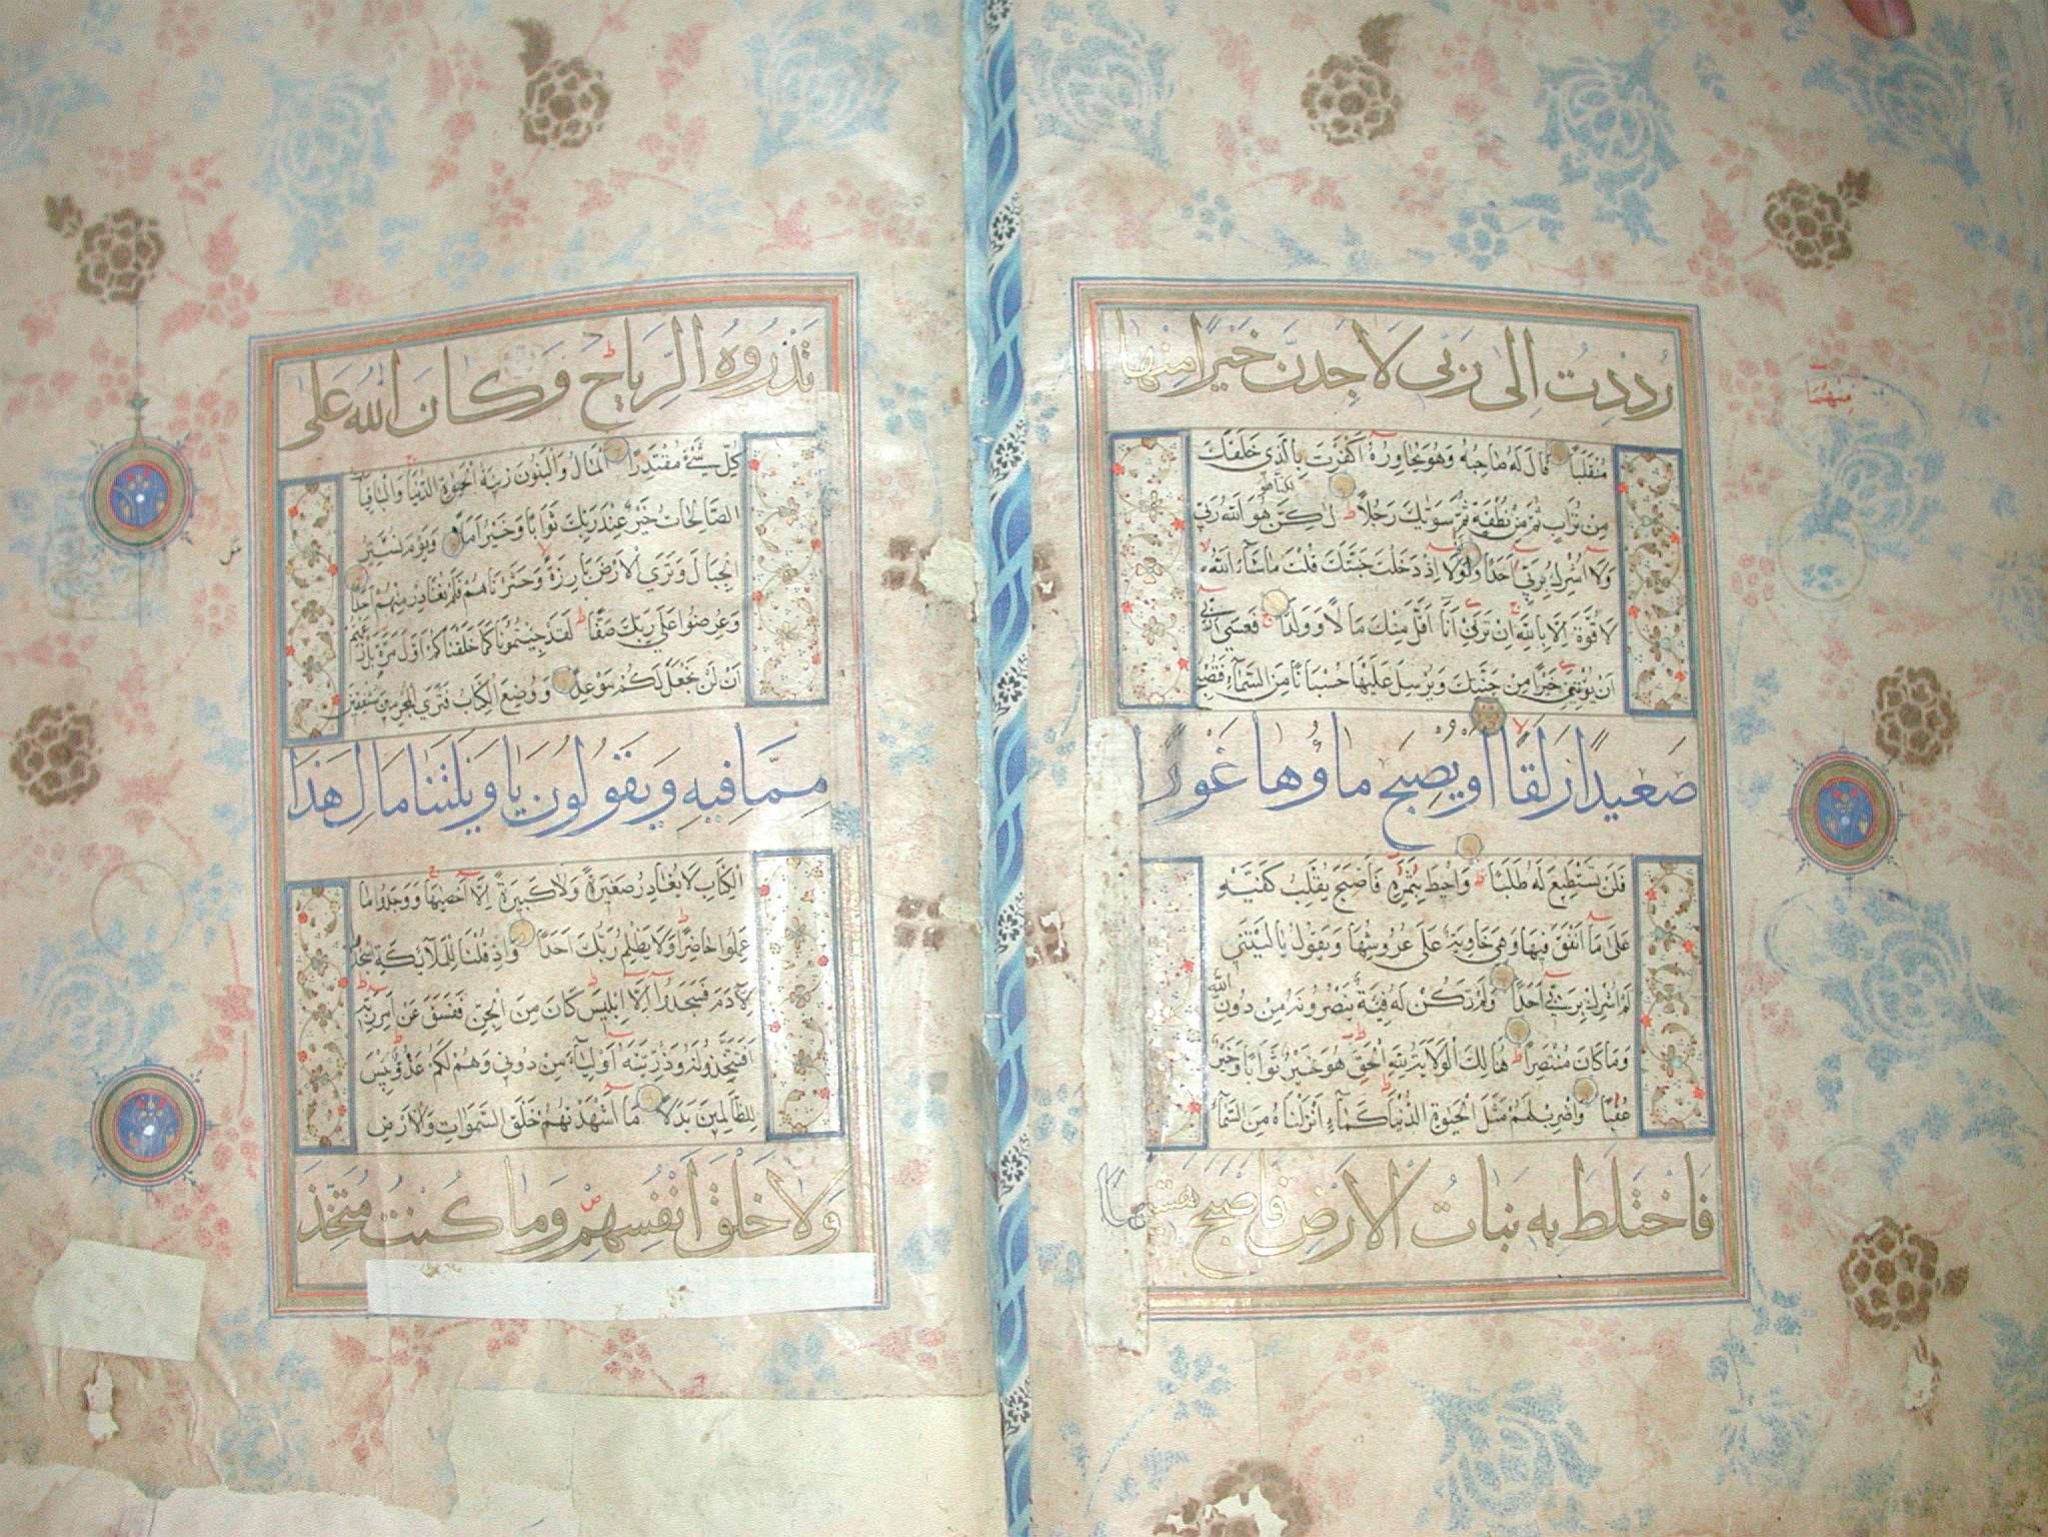 رُدِدْتُ اِلٰى رَبّى لَاَجِدَنَّ خَيْرًا مِنْهَا
مُنْقَلَبًا قَالَ لَهُ صَاحِبُهُ وَهُوَ يُحَاوِرُهُ اَكَفَرْتَ بِالَّذِى خَلَقَكَ
مِنْ تُرَابٍ ثُمَّ مِنْ نُطْفَةٍ ثُمَّ سَوّٰيكَ رَجُلًا لٰكِنَّ هُوَ اللّٰهُ رَبّى
وَلَا اُشْرِكُ بِرَبّى اَحَدًا وَلَوْلَا اِذْ دَخَلْتَ جَنَّتَكَ قُلْتَ مَا شَاءَ اللّٰهُ
لَا قُوَّةَ اِلَّا بِاللّٰهِ اِنْ تَرَنِ اَنَا اَقَلَّ مِنْكَ مَالًا وَوَلَدًا فَعَسٰى رَبّى
اَنْ يُؤْتِيَنِ خَيْرًا مِنْ جَنَّتِكَ وَيُرْسِلَ عَلَيْهَا حُسْبَانًا مِنَ السَّمَاءِ فَتُصْبِحَ
صَعِيدًا زَلَقًا اَوْ يُصْبِحَ مَاؤُهَا غَوْرًا
فَلَنْ تَسْتَطِيعَ لَهُ طَلَبًا وَاُحِيطَ بِثَمَرِهِ فَاَصْبَحَ يُقَلِّبُ كَفَّيْهِ
عَلٰى مَا اَنْفَقَ فِيهَا وَهِىَ خَاوِيَةٌ عَلٰى عُرُوشِهَا وَيَقُولُ يَالَيْتَنِى
لَمْ اُشْرِكْ بِرَبّى اَحَدًا وَلَمْ تَكُنْ لَهُ فِئَةٌ يَنْصُرُونَهُ مِنْ دُونِ اللّٰهِ
وَمَا كَانَ مُنْتَصِرًا هُنَالِكَ الْوَلَايَةُ لِلّٰهِ الْحَقِّ هُوَ خَيْرٌ ثَوَابًا وَخَيْرٌ
عُقْبًا وَاضْرِبْ لَهُمْ مَثَلَ الْحَيٰوةِ الدُّنْيَا كَمَاءٍ اَنْزَلْنَاهُ مِنَ السَّمَاءِ
فَاخْتَلَطَ بِهِ نَبَاتُ الْاَرْضِ فَاَصْبَحَ هَشِيمًا
مِنْهُمَا
تَذْرُوهُ الرِّيَاحُ وَكَانَ اللّٰهُ عَلٰى
كُلِّ شَىْءٍ مُقْتَدِرًا اَلْمَالُ وَالْبَنُونَ زِينَةُ الْحَيٰوةِ الدُّنْيَا وَالْبَاقِيَاتُ
الصَّالِحَاتُ خَيْرٌ عِنْدَ رَبِّكَ ثَوَابًا وَخَيْرٌ اَمَلًا وَيَوْمَ نُسَيِّرُ
الْجِبَالَ وَتَرَى الْاَرْضَ بَارِزَةً وَحَشَرْنَاهُمْ فَلَمْ نُغَادِرْ مِنْهُمْ اَحَدًا
وَعُرِضُوا عَلٰى رَبِّكَ صَفًّا لَقَدْ جِئْتُمُونَا كَمَا خَلَقْنَاكُمْ اَوَّلَ مَرَّةٍ بَلْ زَعَمْتُمْ
اَنْ لَنْ نَجْعَلَ لَكُمْ مَوْعِدًا وَوُضِعَ الْكِتَابُ فَتَرَى الْمُجْرِمِينَ مُشْفِقِينَ
مِمَّا فِيهِ وَيَقُولُونَ يَا وَيْلَتَنَا مَالِ هٰذَا
الْكِتَابِ لَا يُغَادِرُ صَغِيرَةً وَلَا كَبِيرَةً اِلَّا اَحْصٰيهَا وَوَجَدُوا مَا
عَمِلُوا حَاضِرًا وَلَا يَظْلِمُ رَبُّكَ اَحَدًا وَاِذْ قُلْنَا لِلْمَلَائِكَةِ اسْجُدُوا
لِاٰدَمَ فَسَجَدُوا اِلَّا اِبْلِيسَ كَانَ مِنَ الْجِنِّ فَفَسَقَ عَنْ اَمْرِ رَبِّهِ
اَفَتَتَّخِذُونَهُ وَذُرِّيَّتَهُ اَوْلِيَاءَ مِنْ دُونِى وَهُمْ لَكُمْ عَدُوٌّ بِئْسَ
لِلظَّالِمِينَ بَدَلًا مَا اَشْهَدْتُهُمْ خَلْقَ السَّمٰوَاتِ وَالْاَرْضِ
وَلَا خَلْقَ اَنْفُسِهِمْ وَمَا كُنْتُ مُتَّخِذَ